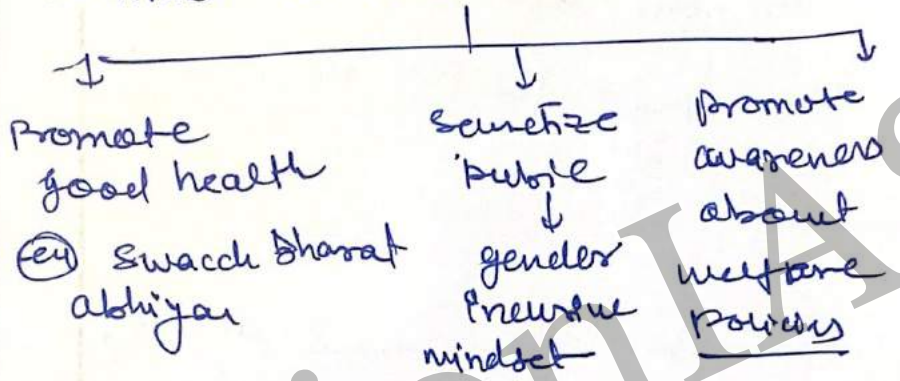 Promote
good health
eg Swacch Bharat
abhiyan
Sensitize
public
gender
inclusive
mindset
Promote
awareness
about
welfare
policies